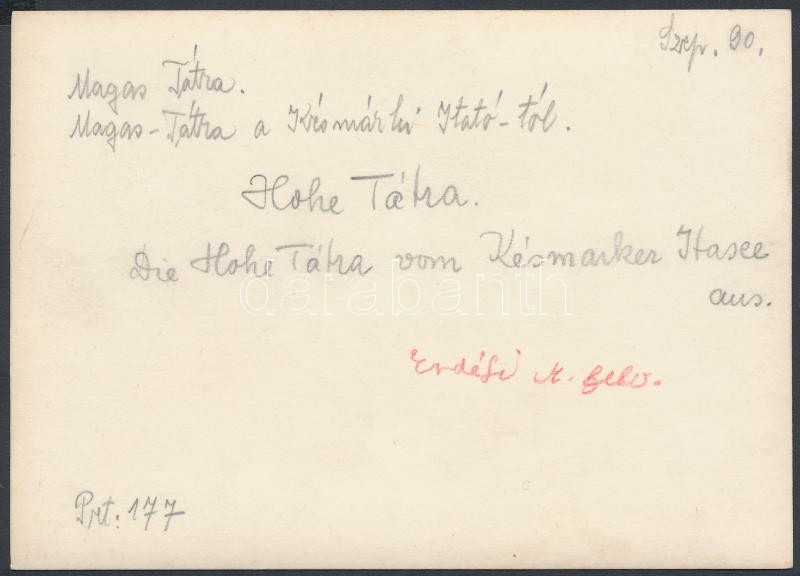 Szep. 90.
Magas Tátra.
Magas-Tátra a Késmárki Itató-tól.
Hohe Tátra.
Die Hohe Tátra vom Késmarker
aus.
darabanth
Erdélyi M.
Prt: 177